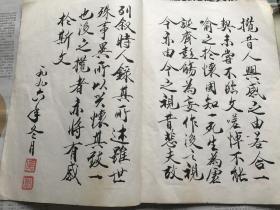 攬昔人興感之由若合一
契未嘗不臨文嗟悼不能
喻之於懷固知一死生為虛
誕齊彭殤為妄作後之視
今亦由今之視昔悲夫故
列敘時人錄其所述雖世
殊事異所以興懷其致一
也後之攬者亦將有感
於斯文
一九九六年冬月